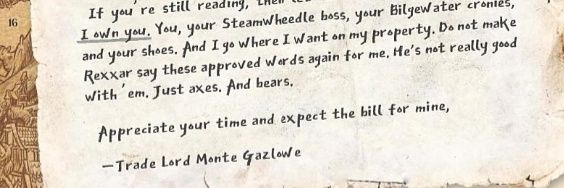 16
If you're still reading, then
I own you. You, your SteamWheedle boss, your Bilgewater cronies,
and your shoes. And I go where I want on my property. Do not make
Rexxar say these approved words again for me. He's not really good
with 'em. Just axes. And bears.
Appreciate your time and expect the bill for mine,
—Trade Lord Monte Gazlowe